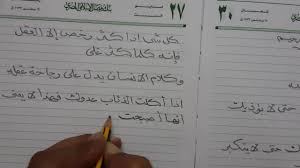 ٢٧
٣٠
كل شئ اذا كثر رخص إلا العقل
فإنه كلما كثر غلى
وكلام الانسان يدل على رجاحة عقله
اذا أكلت الذئاب عدوك فهذا لا يعني
أنها أصبحت
حتى لا
حتى لا يتكبر